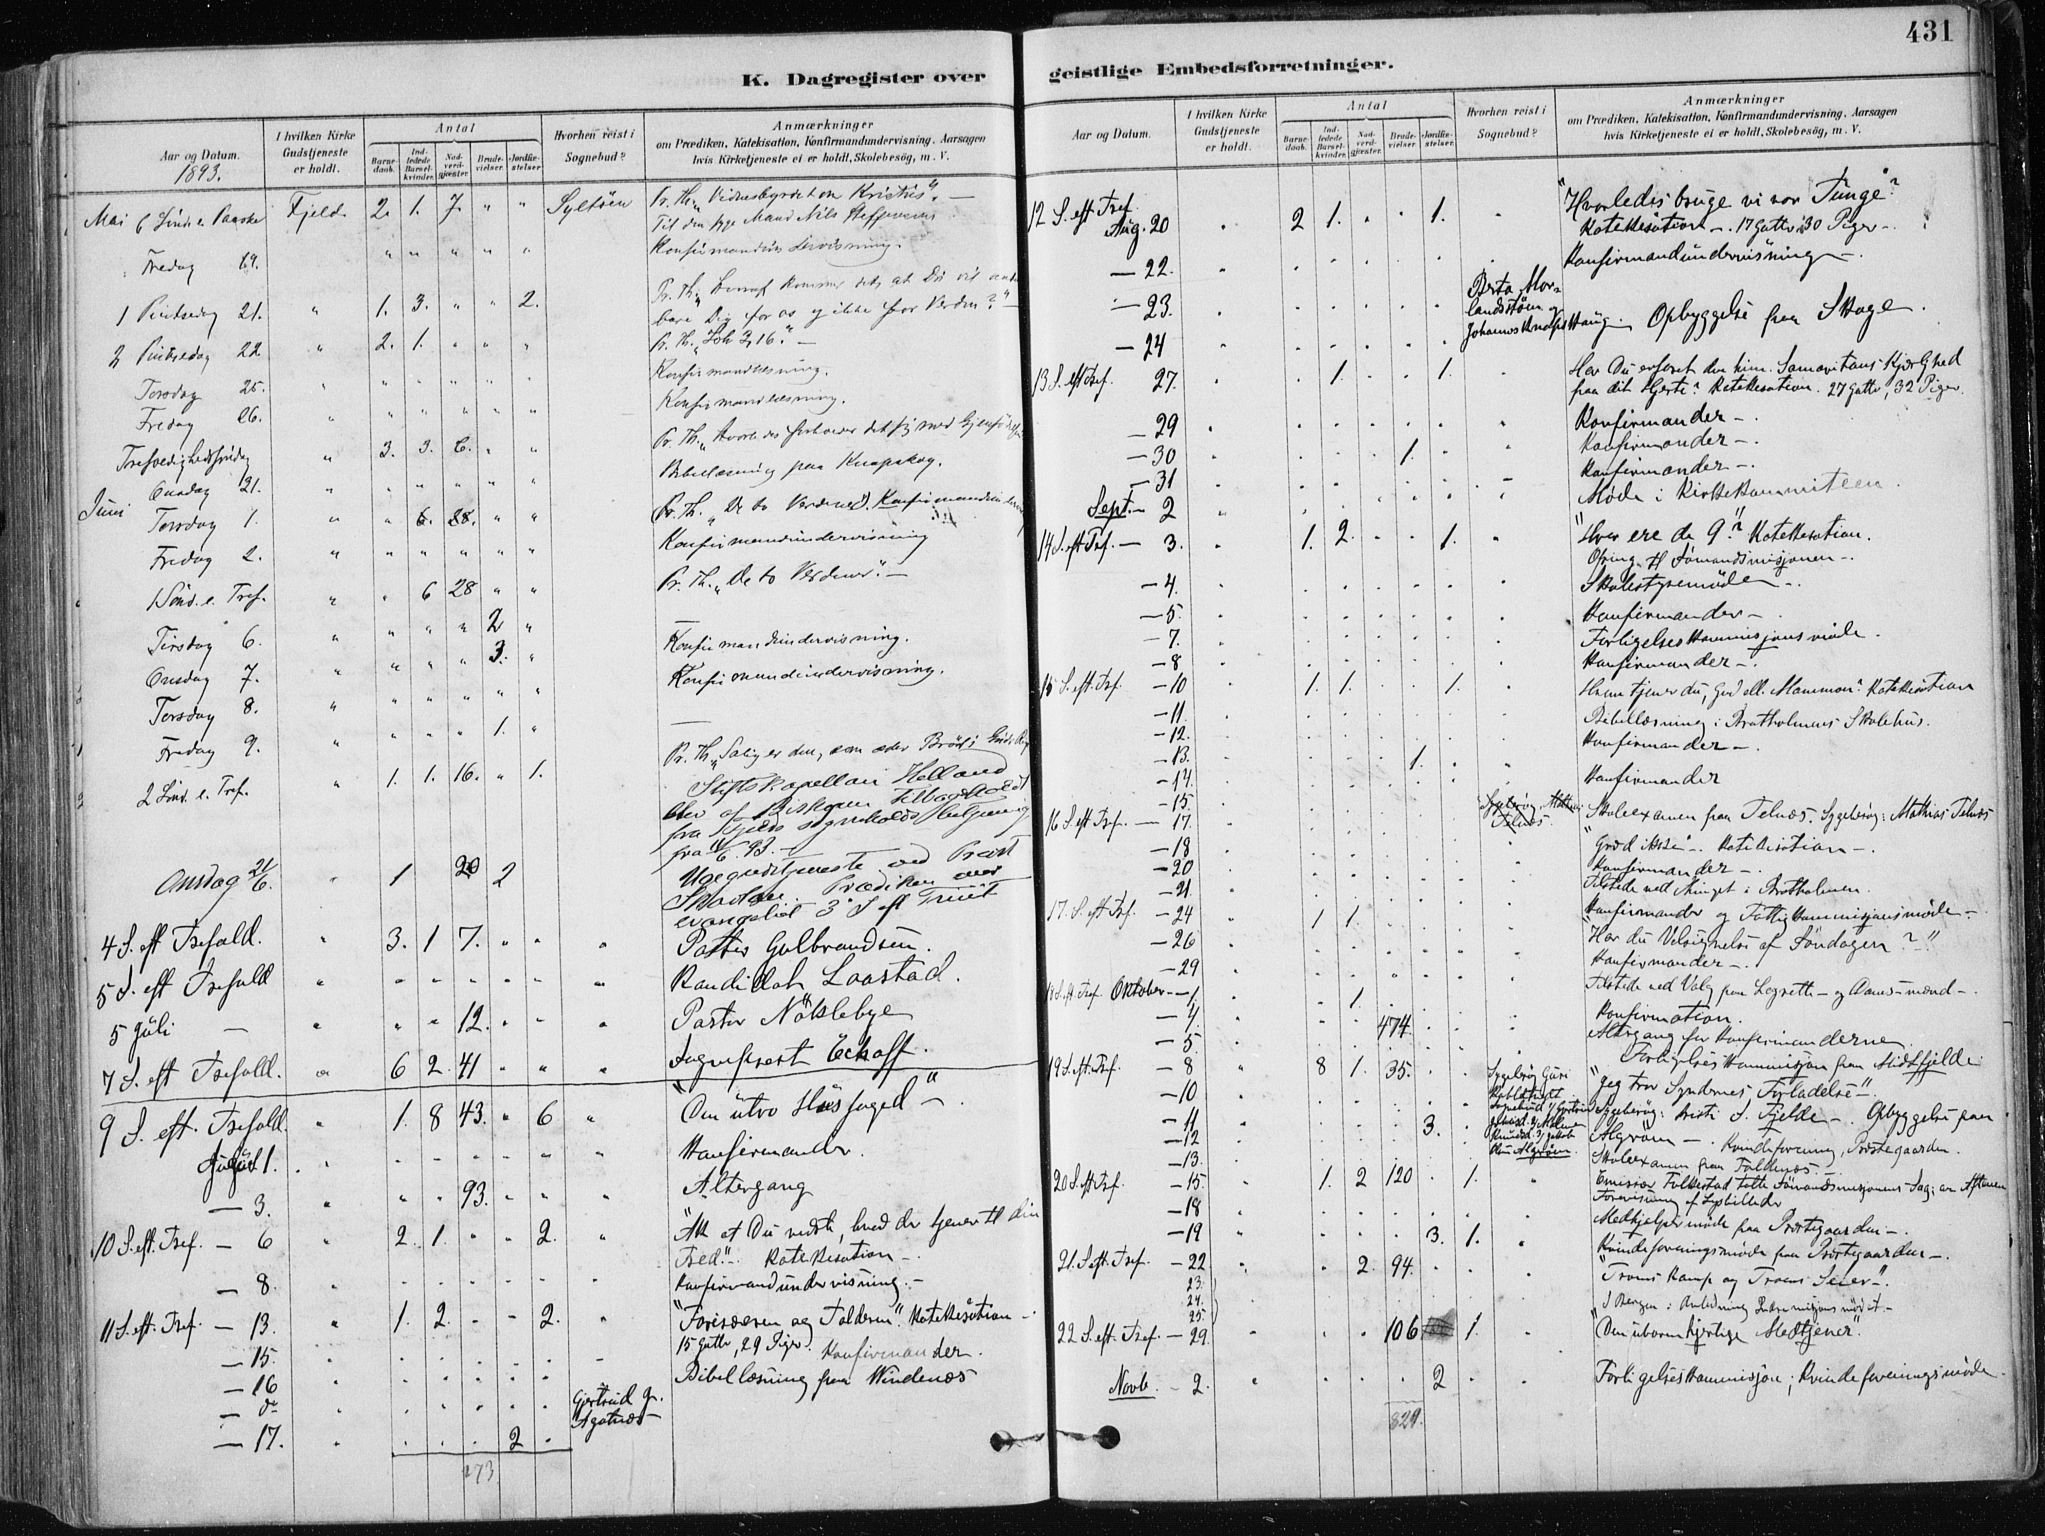 431
K. Dagregister over geistlige Embedsforretninger.
Aar og Datum. 1893.
I hvilken Kirke Gudstjeneste er holdt.
Antal
Barnedaab.
Indledede Barselkvinder.
Nadverdgjæster.
Brudevielser.
Jordfæstelser
Hvorhen reist i Sognebud?
Anmærkninger
om Prædiken, Katekisation, Konfirmandundervisning, Aarsagen
hvis Kirketjeneste ei er holdt, Skolebesög, m. V.
Mai 6 Sönd e. Paaske Fjeld 2. 1. 7. " " Syltöen Pr. Th. "Vidnesbyrdet om Kristus". —
Til den syge Mand Nils Steffensen
Fredag 19. " " " " " " Konfirmandundervisning.
1 Pintsedag 21. " 1. 3. " " 2. Pr. Th. " kommer det, at Du vil
bare Dig for os og ikke for Verden? "
2 Pintsedag 22 2. 1. " " " Pr. Th. "Joh 3, 16." —
Torsdag 25. " " " " " " Konfirmandlæsning.
Fredag 26. " " " " " " Konfirmandlæsning.
Trefoldighedssöndag " 3. 3. 6. " " Pr. Th. "Hvorledes forholder det sig med
Onsdag 31. " " " " " " Bibellæsning paa Knapskog.
Juni Torsdag 1. " " 6. 28. " " Pr. Th. "De to Verdener". Konfirmandundervisn
Fredag 2. " " " " " " Konfirmandundervisning
1 Sönd. e. Tref. " " 6 28 " " Pr. Th. "De to Verdener". —
Tirsdag 6. " " " " 2 " —
Onsdag 7. " " " " 3. " Konfirmandundervisning.
Torsdag 8. " " " " " " Konfirmandundervisning.
Fredag 9. " " " " 1. " —
2 Sönd. e. Tref. " 1. 1. 16. " 1. Pr. Th. "Salig er den, som æder Bröd i Guds Rige
Stiftskapellan Helland
blev af Biskopen tilbageholdt
fra Fjelds sognekalds Betjening
fra 11/6. 93. —
Onsdag 21/6. " 1 20 2 Ugegudstjeneste ved Præst
Prædiken over
evangeliet 3 S. eft Trinit
4 S. eft Trefold. " 3. 1 7. " " " Pastor Gulbrandsen.
5 S. eft Trefold " " " " " " " Kandidat Laastad.
5 Juli — " " " 12. " " " Pastor Nökleby
7 S. eft Trefold. " 6 2 41 " " " Sogneprest Eckoff.
9 S. eft. Trefold. " 1. 8 43. " 6 " "Den utro Husfoged" —
August 1. " " " " " " " Konfirmander.
— 3. " " " 93. " " " Altergang
10 S. eft. Tref. — 6 " 2. 1. " " 2. " "Ak at Du vidste, hvad der tjener til din
Fred". — Katekesation —.
— 8. Konfirmandundervisning. —
11 S. eft. Tref. — 13. " 1. 2. - - 2. " "Fariseeren og Tolderen". Katekesation —
15 Gutter, 29 Piger.
— 15. Konfirmander.
— 16 Bibellæsning paa Vindenæs
— do Gjertrud G.
Agotnæs —
— 17. 2
273
Aar og Datum.
I hvilken Kirke Gudstjeneste er holdt.
Antal
Barnedaab.
Indledede Barselkvinder.
Nadverdgjæster.
Brudevielser.
Jordfæstelser.
Hvorhen reist i Sognebud?
Anmærkninger
om Prædiken, Katekisation, Konfirmandundervisning, Aarsagen
hvis Kirketjeneste ei er holdt, Skolebesög, m. V.
12 S. eft Tref. Aug. 20 2 1. 1. "Hvorledes bruge vi vor Tunge"?
Katekesation —. 17 Gutter 30 Piger —.
— 22. Konfirmandundervisning —.
— 23. Berta Morlandstöen og
Johannes Knudsen Haug. Opbyggelse paa Skoge.
— 24
13 S. eft Tref. 27. 1. 1. Har Du erfaret den him. Samaritans Kjærlighed
paa dit Hjerte? Katekesation. 27 Gutter, 32 Piger.
— 29 Konfirmander —.
— 30 1. Konfirmander —.
— 31 Konfirmander —.
Sept. — 2 Möde i Kirkekommiteen.
14 S. eft Tref. — 3. 1. 2. 1. "Hvor ere de 9"? Katekesation.
Ofring til Sömandsmisjonen —.
— 4. Skolestyremöde —.
— 5. Konfirmander —
— 7. Forligelseskommisjonsmöde.
— 8 Konfirmander —.
15 S. eft. Tref. — 10 1. 1. 1. Hvem tjener du, Gud ell. Mammon? Katekesation
— 11. Bibellæsning i Brattholmens Skolehus.
— 12. Konfirmander —.
— 13. 1.
— 14. Konfirmander
— 15. Sygebesög, Mathias Telnæs. Skoleexamen paa Telnæs. Sygebesög: Mathias Telnæs
16 S. eft Tref. — 17. "Græd ikke". Katekesation —.
— 18 Konfirmander —.
— 20 Tilstede ved Thinget i Brattholmen.
— 21. Konfirmander og Fattigkommisjonsmöde —
17. S. eft Tref. — 24 1 1. "Har du Velsignelse af Söndagen?"
— 26 Konfirmander —.
— 29 Tilstede ved Valg paa Lagrette- og Domsmænd —.
18 S. eft Tref. Oktober — 1. 1. Konfirmation.
— 4. 474. Altergang for Konfirmanderne
— 5 Forligelseskommisjon paa Midtfjelde
19 S. eft. Tref. — 8 8 1. 35. Sygebesög Guri "Jeg tror Syndernes Forladelse".
— 10 Sygebesög: Kristi S. Fjelde —. Opbyggelse paa
— 11 3. Algröen —. Kvindeforening, Præstegaarden.
— 12 Algröen.
— 13. Skoleexamen paa Foldnæs.
20 S. eft Tref. — 15. 1. 2 120 1. Emissær Folkestad talte Sömandsmisjonens Sag; om Aftenen
Forevisning af Lysbilleder
— 18 Medhjelpermöde paa Præstegaarden —.
— 19 3. 1. Kvindeforeningsmöde paa Præstegaarden —.
21. S. eft. Tref. — 22 2. 94. "Troens Kamp og Troens Seier". —
23.
24. I Bergen i Anledning Indremisjonsmödet —
25.
22 S. eft. Tref. — 29. 106 1. "Den ubarmhjertige Medtjener".
Novb. — 2. 2 Forligelseskommisjon; Kvindeforeningsmöde.
829.